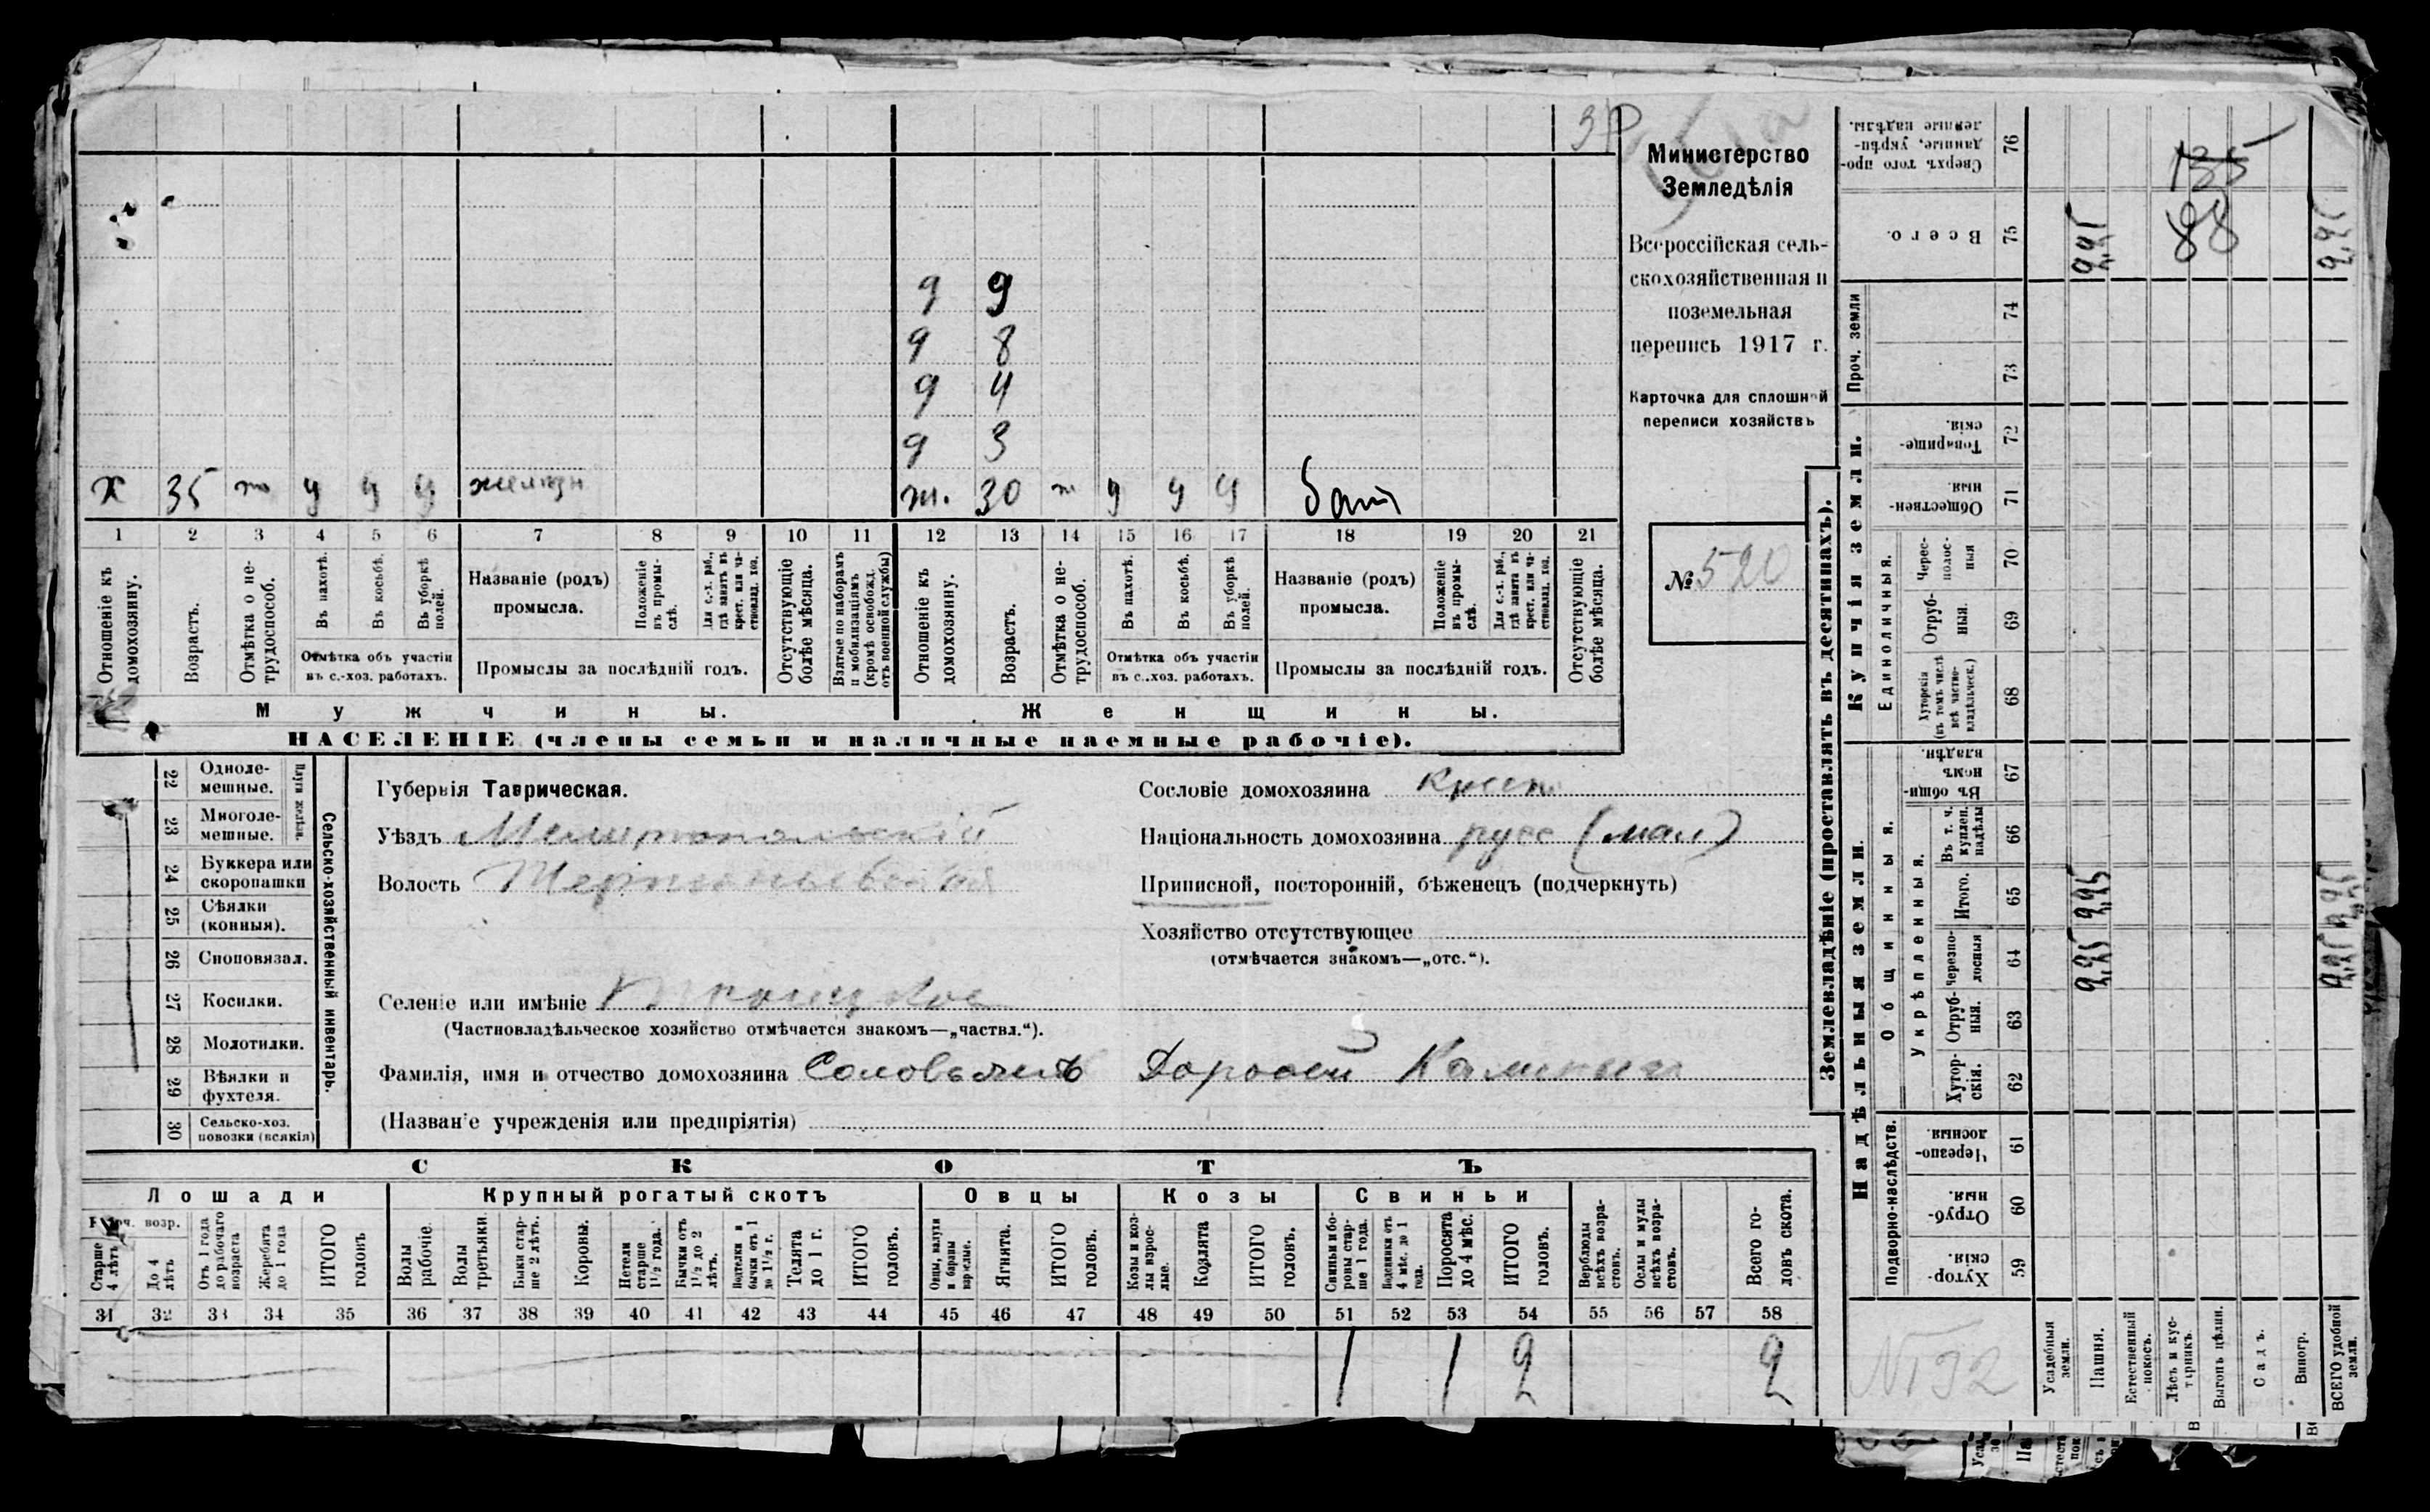 3
Министерство
Земледѣлія
Всероссійская сель-
скохозяйственная и
поземельная
перепись 1917 г.
Карточка для сплошной
переписи хозяйствъ
№ 520
д 9
д 8
д 4
д 3
х 35 т у у у ж. 30 т у у у бат
1 2 3 4 5 6 7 8 9 10 11 12 13 14 15 16 17 18 19 20 21
Отношеніе къ домохозяину.
Возрастъ.
Отмѣтка о не-трудоспособ.
Въ пахотѣ.
Въ косьбѣ.
Въ уборкѣ полей.
Отмѣтка объ участіи
въ с.-хоз. работахъ.
Названіе (родъ)
промысла.
Положеніе въ промы-слѣ.
Для с.-х. раб., гдѣ занятъ въ крест. или ча-стновлад. хоз.
Промыслы за послѣдній годъ.
Отсутствующіе болѣе мѣсяца.
Взятые по наборамъ и мобилизаціямъ (кромѣ освобожд. отъ военной службы)
Отношеніе къ домохозяину.
Возрастъ.
Отмѣтка о не-трудоспособ.
Въ пахотѣ.
Въ косьбѣ.
Въ уборкѣ полей.
Отмѣтка объ участіи
въ с.-хоз. работахъ.
Названіе (родъ)
промысла.
Положеніе въ промы-слѣ.
Для с.-х. раб., гдѣ занята въ крест. или ча-стновлад. хоз.
Промыслы за послѣдній годъ.
Отсутствующіе болѣе мѣсяца.
Мужчины. Женщины.
НАСЕЛЕНІЕ (члены семьи и наличные наемные рабочіе).
Сельско-хозяйственный инвентарь.
22 Одноле-мешные.
23 Многоле-мешные.
24 Буккера или скоропашки
25 Сѣялки (конныя).
26 Сноповязал.
27 Косилки.
28 Молотилки.
29 Вѣялки и фухтеля.
30 Сельско-хоз. повозки (всякія)
Губернія Таврическая.
Уѣздъ Мелитопольскій
Волость
Селеніе или имѣніе Троицкое
(Частновладѣльческое хозяйство отмѣчается знакомъ—„частвл.“).
Фамилія, имя и отчество домохозяина Дорофей
(Названіе учрежденія или предпріятія)
Сословіе домохозяина крест.
Національность домохозяина русс (мал)
Приписной, посторонній, бѣженецъ (подчеркнуть)
Хозяйство отсутствующее
(отмѣчается знакомъ—„отс.“).
СКОТЪ
Лошади Крупный рогатый скотъ Овцы Козы Свиньи
Старше 4 лѣтъ
До 4 лѣтъ
Отъ 1 года до рабочаго возраста
Жеребята до 1 года
ИТОГО головъ
Волы рабочіе.
Волы третьяки.
Быки стар-ше 2 лѣтъ.
Коровы.
Нетели старше 1½ года.
Бычки отъ 1½ до 2 лѣтъ.
Подтелки и бычки отъ 1 до 1½ г.
Телята до 1 г.
ИТОГО головъ.
Овцы, валухи и бараны взрослые.
Ягнята.
ИТОГО головъ.
Козы и коз-лы взрос-лые.
Козлята
ИТОГО головъ.
Свиньи и бо-ровы стар-ше 1 года.
Подсвинки отъ 4 мѣс. до 1 года.
Поросята до 4 мѣс.
ИТОГО головъ.
Верблюды всѣхъ возра-стовъ.
Ослы и мулы всѣхъ возра-стовъ.
Всего го-ловъ скота.
31 32 33 34 35 36 37 38 39 40 41 42 43 44 45 46 47 48 49 50 51 52 53 54 55 56 57 58
1 1 2 2
Землевладѣніе (проставлять въ десятинахъ).
Надѣльныя земли. Купчія земли. Проч. земли
Подворно-наслѣдств. Общинныя. Укрѣпленныя. Единоличныя.
59 Хутор-скія.
60 Отруб-ныя.
61 Черезпо-лосныя.
62 Хутор-скія.
63 Отруб-ныя.
64 Черезпо-лосныя
65 Итого.
66 Въ т. ч. куплен. надѣлы
67 Въ общи-номъ владѣн.
68 Хуторскія (въ томъ числѣ всѣ частно-владѣльческ.)
69 Отруб-ныя.
70 Черес-полос-ныя
71 Обществен-ныя.
72 Товарище-скія.
73
74
75 Всего.
76 Сверхъ того про-данные, укрѣп-ленные надѣлы.
Усадебныя земли.
Пашня. 2,25 2,25 2,25
Естественный покосъ.
Лѣсъ и кус-тарникъ.
Выгонъ цѣлин.
Садъ.
Виногр.
ВСЕГО удобной земли. 2,25 2,25 2,25
135
88
№ 92